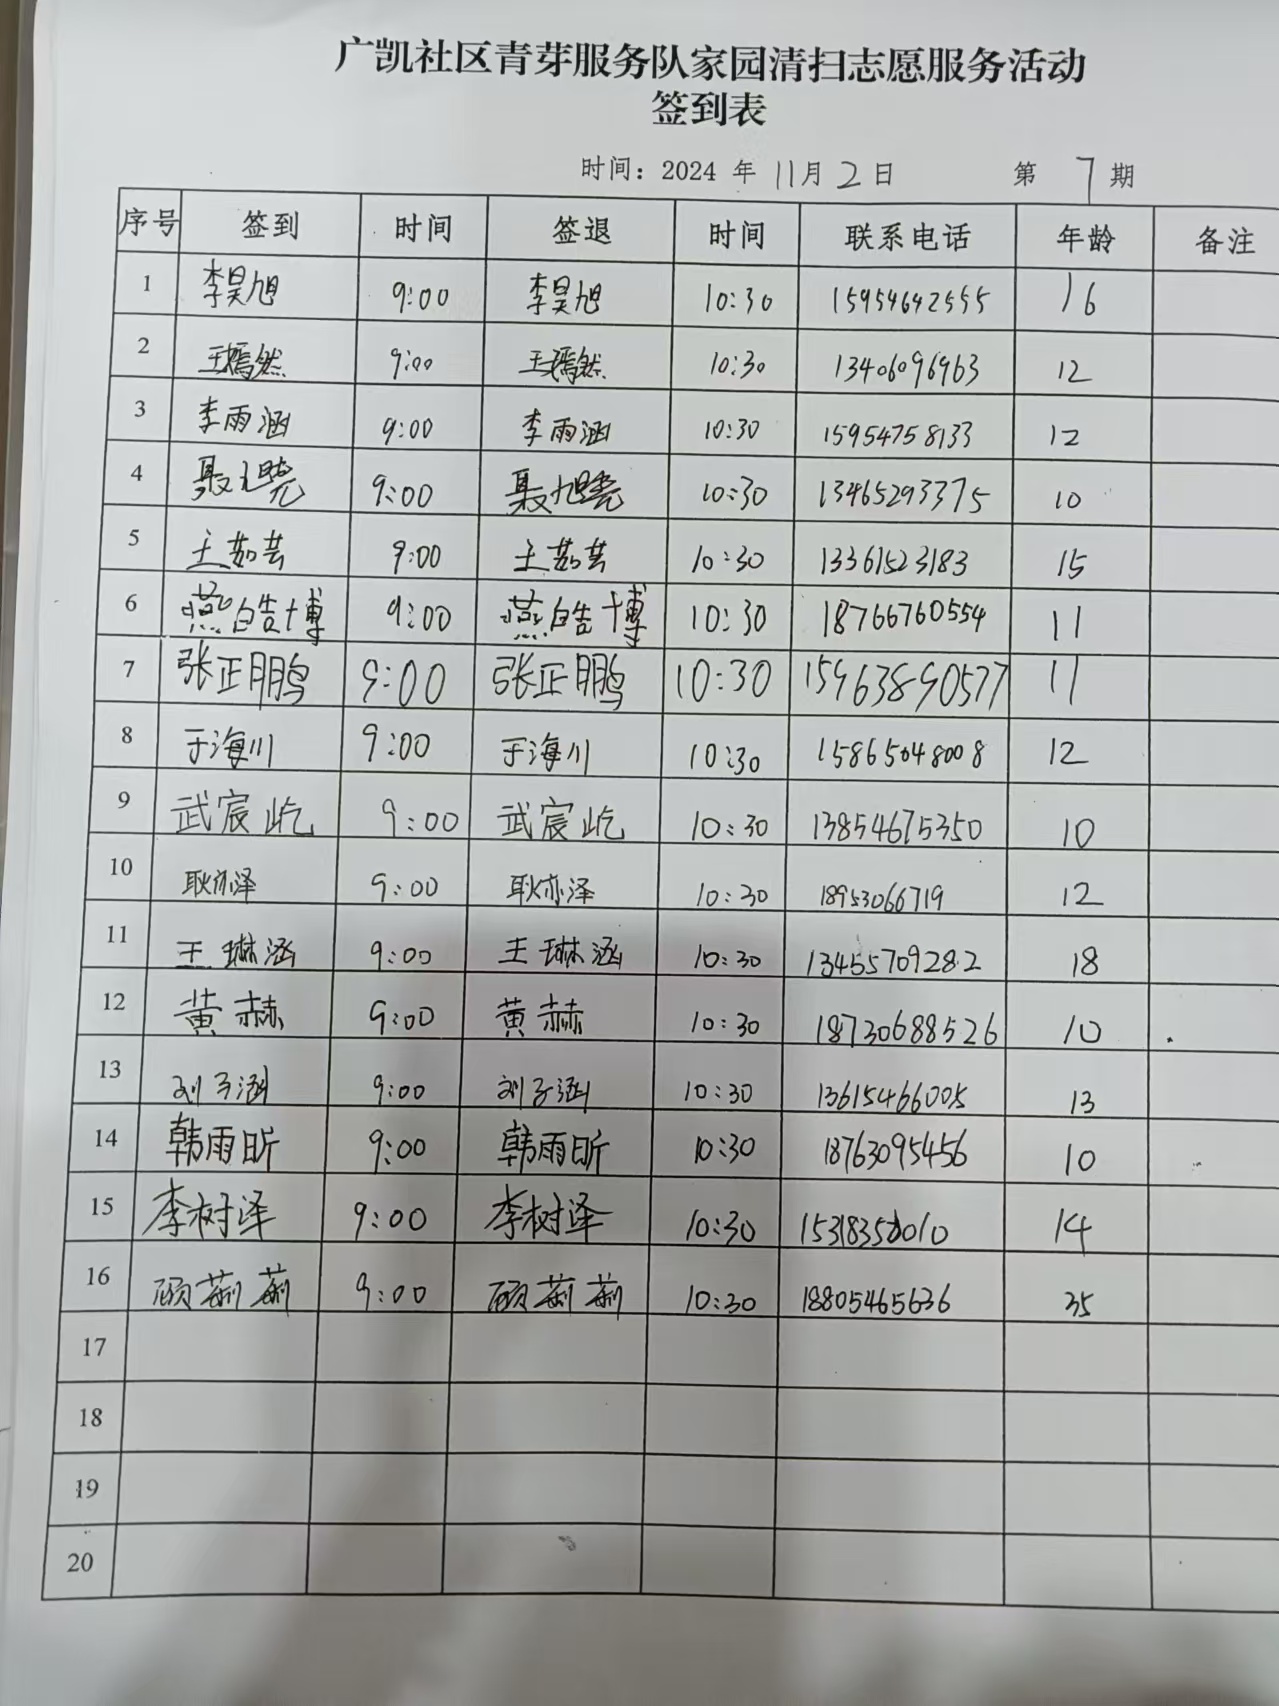 广凯社区青芽服务队家园清扫志愿服务活动
签到表
时间：2024 年 11月 2 日 第 7 期
序号 签到 时间 签退 时间 联系电话 年龄 备注
1 李昊旭 9:00 李昊旭 10:30 15954642555 16
2 王嫣然 9:00 王嫣然 10:30 13406096963 12
3 李雨涵 9:00 李雨涵 10:30 15954758133 12
4 聂旭晓 9:00 聂旭晓 10:30 13465293375 10
5 王茹芸 9:00 王茹芸 10:30 13361523183 15
6 燕皓博 9:00 燕皓博 10:30 18766760554 11
7 张正鹏 9:00 张正鹏 10:30 15963890577 11
8 于海川 9:00 于海川 10:30 15865048008 12
9 武宸屹 9:00 武宸屹 10:30 13854675350 10
10 耿亦泽 9:00 耿亦泽 10:30 18953066719 12
11 王琳涵 9:00 王琳涵 10:30 13455709282 18
12 黄赫 9:00 黄赫 10:30 18730688526 10
13 刘子涵 9:00 刘子涵 10:30 13615466005 13
14 韩雨昕 9:00 韩雨昕 10:30 18763095456 10
15 李树泽 9:00 李树泽 10:30 14
16 顾莉莉 9:00 顾莉莉 10:30 18805465636 35
17
18
19
20